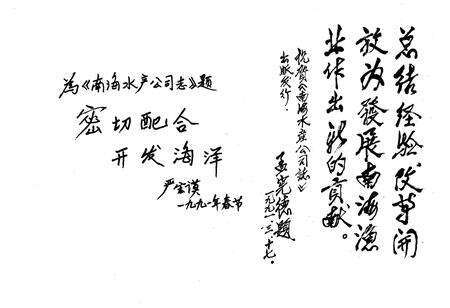 为《南海水产公司志》题
密切配合
开发海洋
严宝谟
一九九一年春节
总结经验改革开
放为發展南海漁
业作出新的贡献。
祝贺《南海水産公司誌》
出版发行。
孟宪德题
一九九一.三.十七.